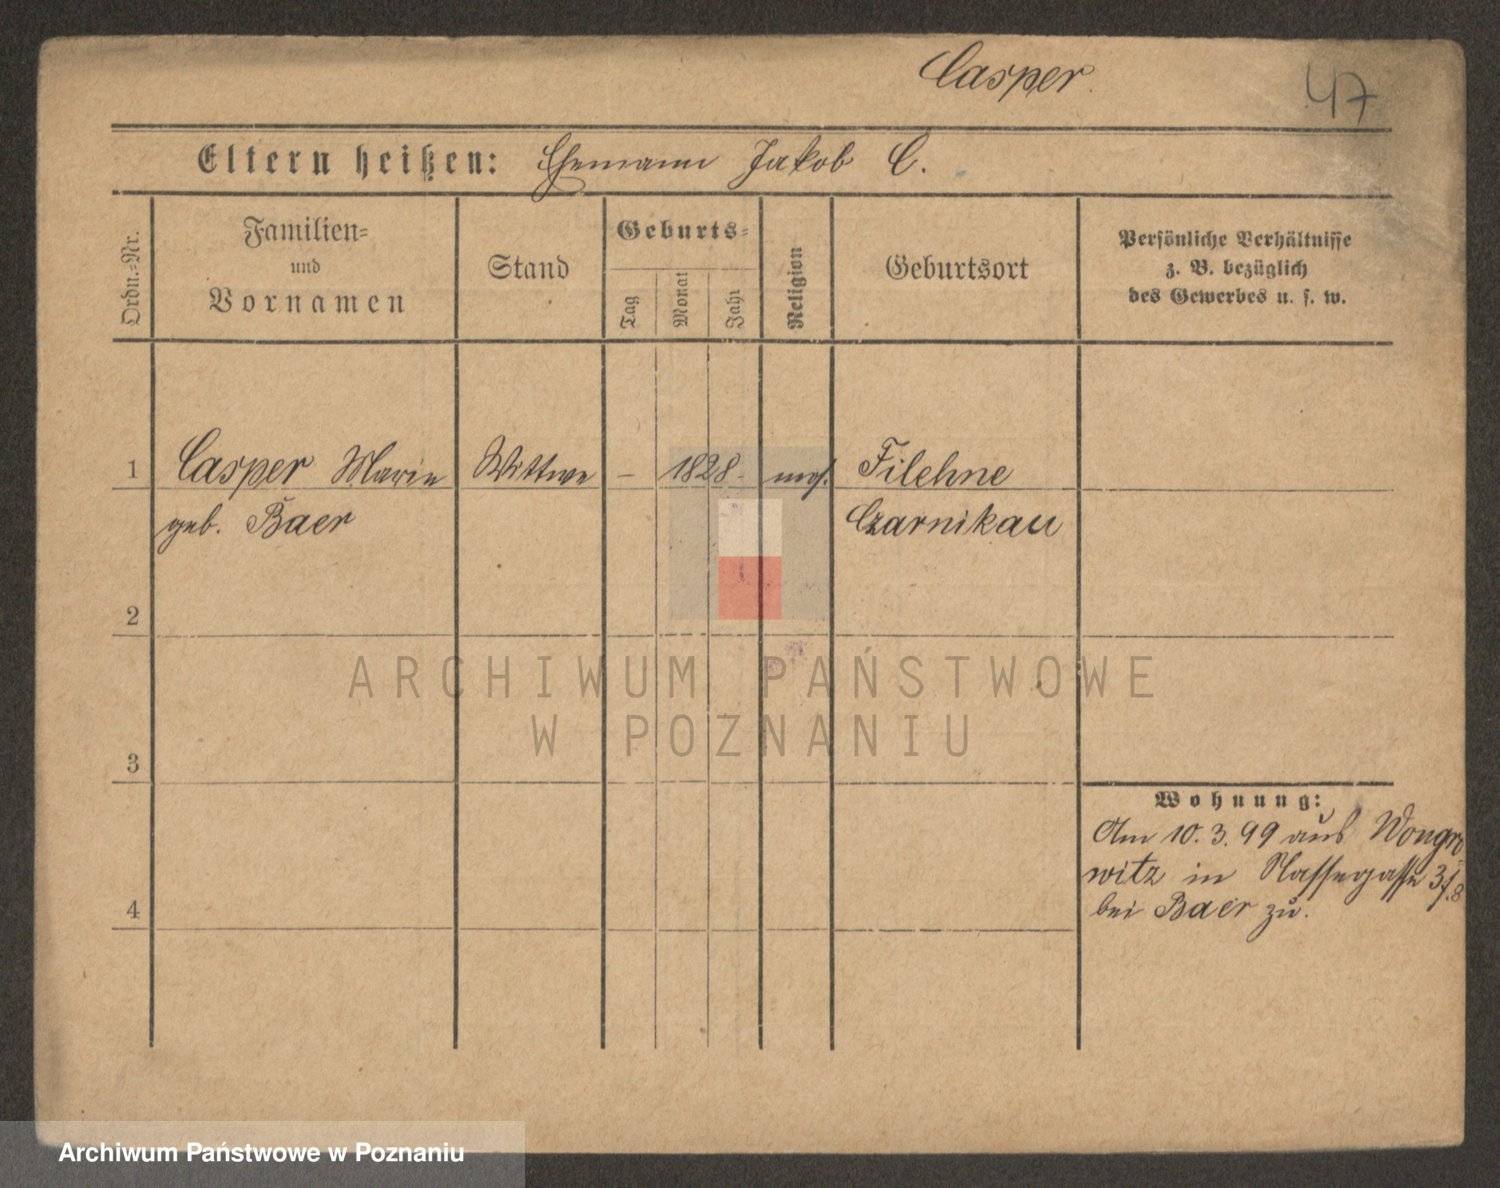 Casper.
47
Eltern heißen: Ehemann Jakob C.
Ordn.-Nr.
Familien-
und
Vornamen
Stand
Geburts-
Tag
Monat
Jahr
Religion
Geburtsort
Persönliche Verhältnisse
z. B. bezüglich
des Gewerbes u. s. w.
1 Casper Marie Wittwe – 1828 mos. Filehne
geb. Baer Czarnikau
2
ARCHIWUM PAŃSTWOWE
W POZNANIU
3
Wohnung:
Am 10.3.99 aus Wongro-
witz in Nassegasse 3/8
4
bei Baer zu.
Archiwum Państwowe w Poznaniu